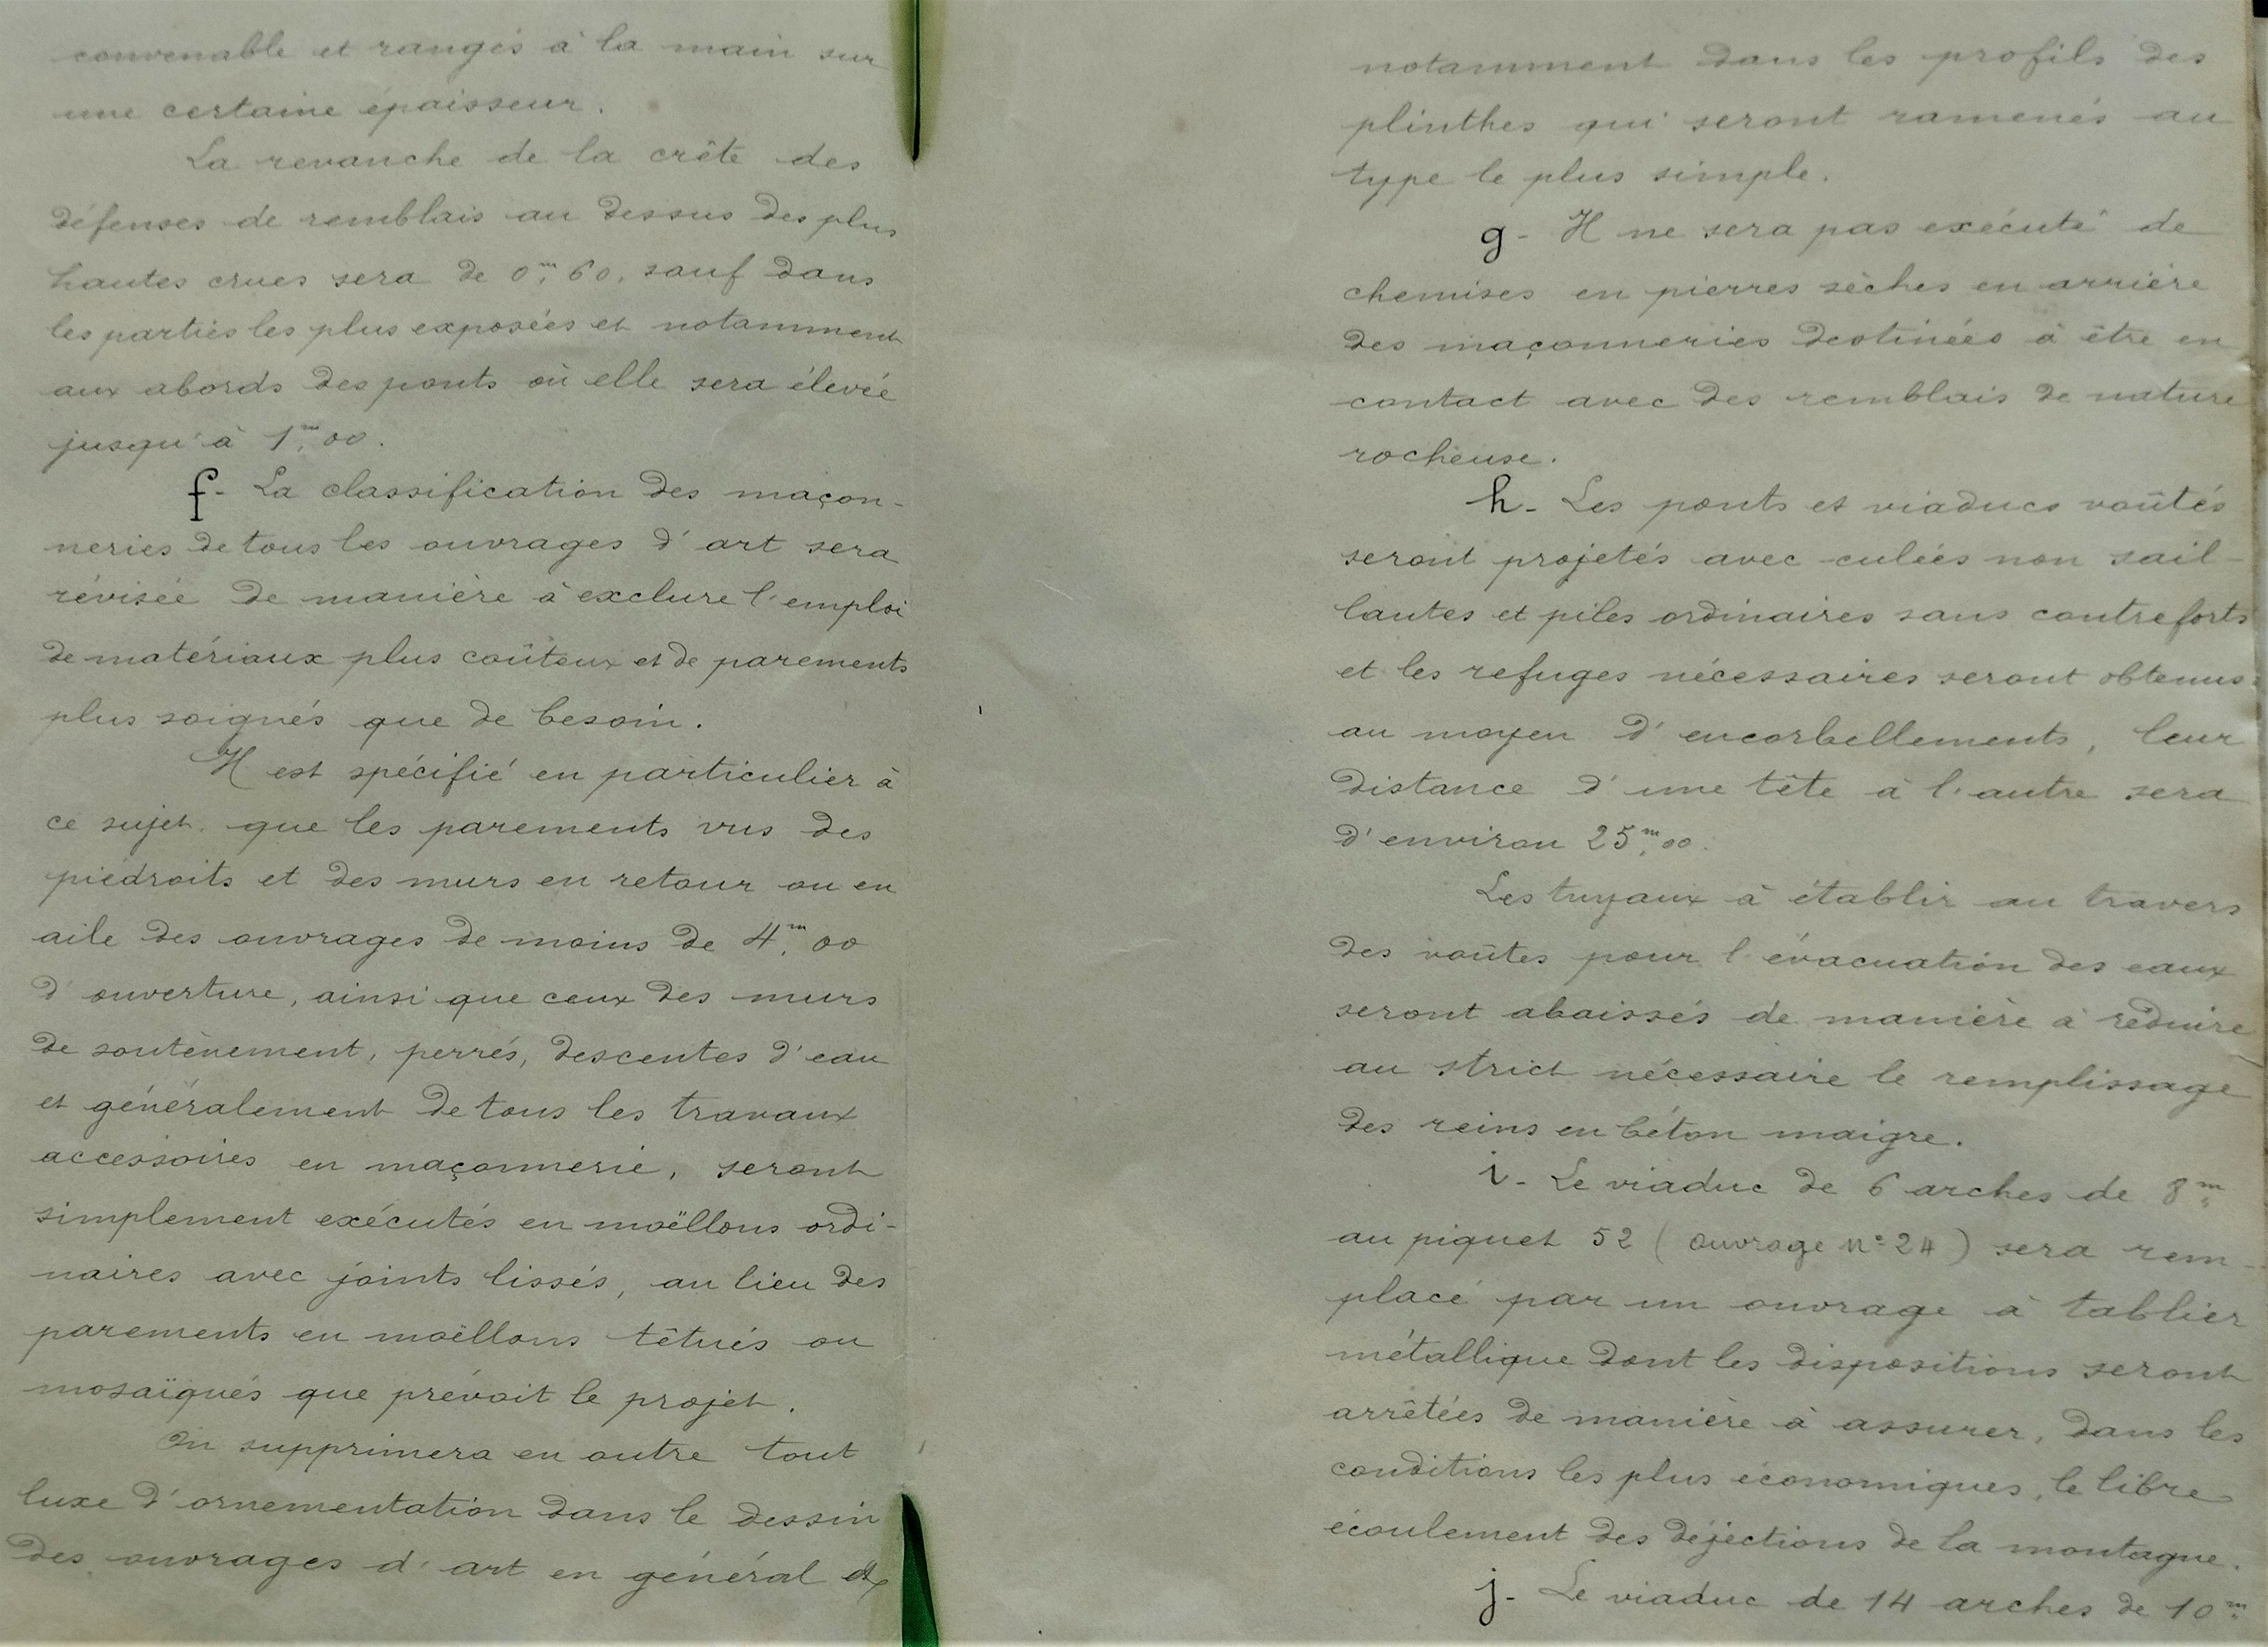 convenable et rangés à la main sur
une certaine épaisseur.
La revanche de la crête des
défenses de remblais au dessus des plus
hautes crues sera de 0,ᵐ60, sauf dans
les parties les plus exposées et notamment
aux abords des ponts où elle sera élevée
jusqu'à 1,ᵐ00.
f- La classification des maçon-
neries de tous les ouvrages d'art sera
révisée de manière à exclure l'emploi
de matériaux plus coûteux et de parements
plus soignés que de besoin.
Il est spécifié en particulier à
ce sujet, que les parements vus des
piédroits et des murs en retour ou en
aile des ouvrages de moins de 4,ᵐ00
d'ouverture, ainsi que ceux des murs
de soutènement, perrés, descentes d'eau
et généralement de tous les travaux
accessoires en maçonnerie, seront
simplement exécutés en moëllons ordi-
naires avec joints lissés, au lieu des
parements en moëllons têtués ou
mosaïqués que prévoit le projet.
On supprimera en outre tout
luxe d'ornementation dans le dessin
des ouvrages d'art en général et
notamment dans les profils des
plinthes qui seront ramenés au
type le plus simple.
g- Il ne sera pas exécuté de
chemises en pierres sèches en arrière
des maçonneries destinées à être en
contact avec des remblais de nature
rocheuse.
h- Les ponts et viaducs voûtés
seront projetés avec culées non sail-
lantes et piles ordinaires sans contreforts
et les refuges nécessaires seront obtenus
au moyen d'encorbellements, leur
distance d'une tête à l'autre sera
d'environ 25,ᵐ00.
Les tuyaux à établir au travers
des voûtes pour l'évacuation des eaux
seront abaissés de manière à réduire
au strict nécessaire le remplissage
des reins en béton maigre.
i- Le viaduc de 6 arches de 8ᵐ
au piquet 52 (ouvrage n° 24) sera rem-
placé par un ouvrage à tablier
métallique dont les dispositions seront
arrêtées de manière à assurer, dans les
conditions les plus économiques, le libre
écoulement des déjections de la montagne.
j- Le viaduc de 14 arches de 10ᵐ